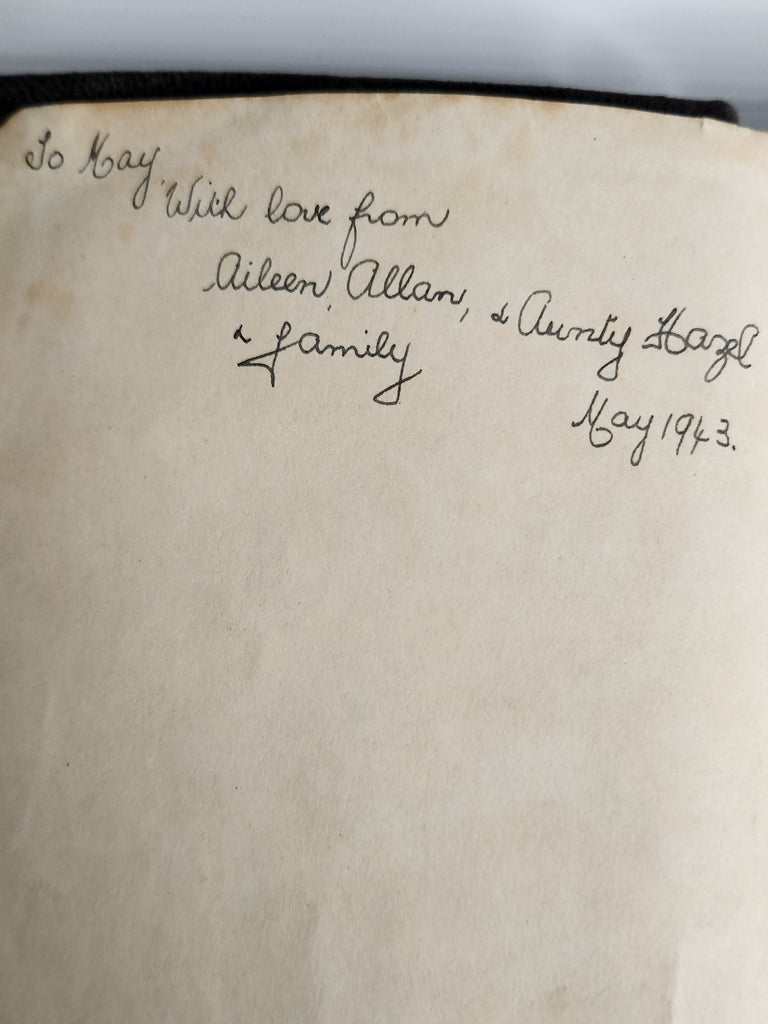 To May,
With love from
Aileen, Allan, & Aunty Hazel
& family
May 1943.